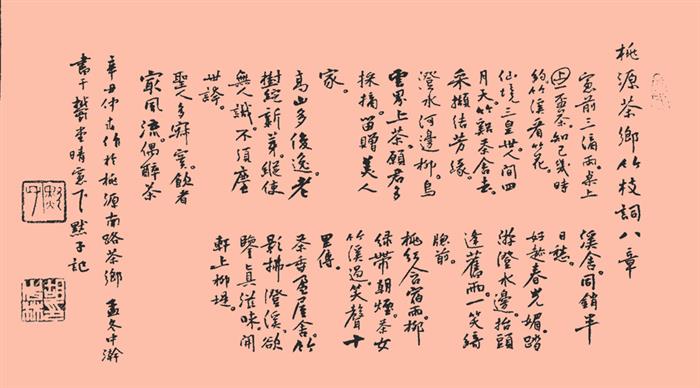 桃源茶鄉竹枝詞八章
窗前三滴雨。桌上
上一壺茶。知己幾時
約。竹溪看筍花。
仙境三皇世。人間四
月天。竹谿茶舍去。
采擷結芳緣。
澄水河邊柳。烏
雲界上茶。願君多
採摘。留贈美人
家。
高山多俊逸。老
樹綻新芽。縱使
無人識。不須塵
世誇。
聖人多寂寞。飲者
最風流。偶醉茶
溪舍。同銷半
日愁。
好趁春光媚。踏
游澄水邊。抬頭
逢舊雨。一笑綺
窗前。
桃紅含宿雨。柳
綠帶朝煙。茶女
竹溪過。笑聲十
里傳。
茶香盈屋舍。竹
影拂澄溪。欲
鑒真滋味。開
軒上柳堤。
辛丑仲 作於桃源南路茶鄉 孟冬中澣
書于 堂晴窗下 默子記